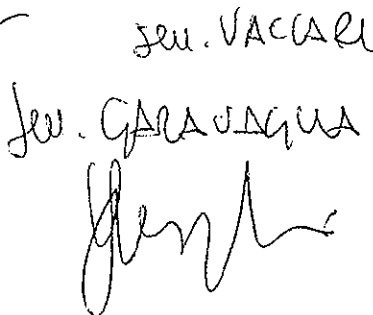 sen. VACCARI
sen. GARAVAGLIA